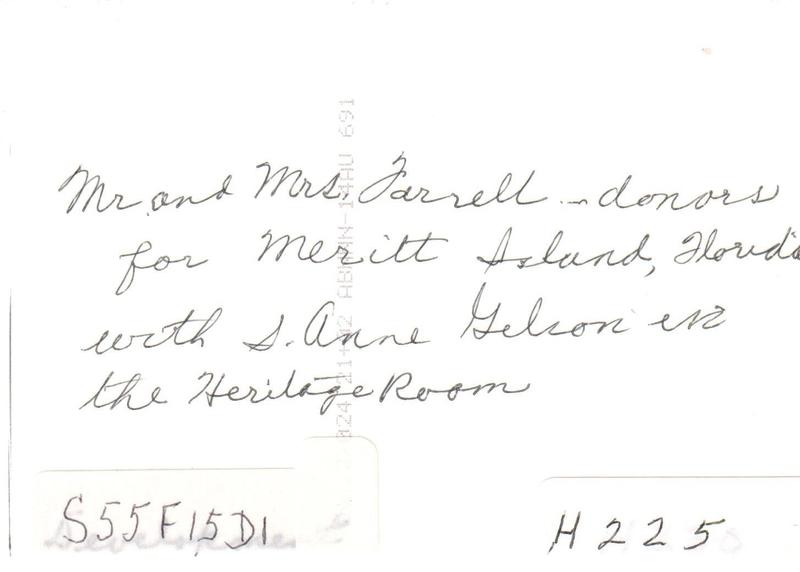 Mr. and Mrs. Farrell - donors
for Meritt Island, Florida
with S. Anne Gelson in
the Heritage Room
S55F15D1
H225